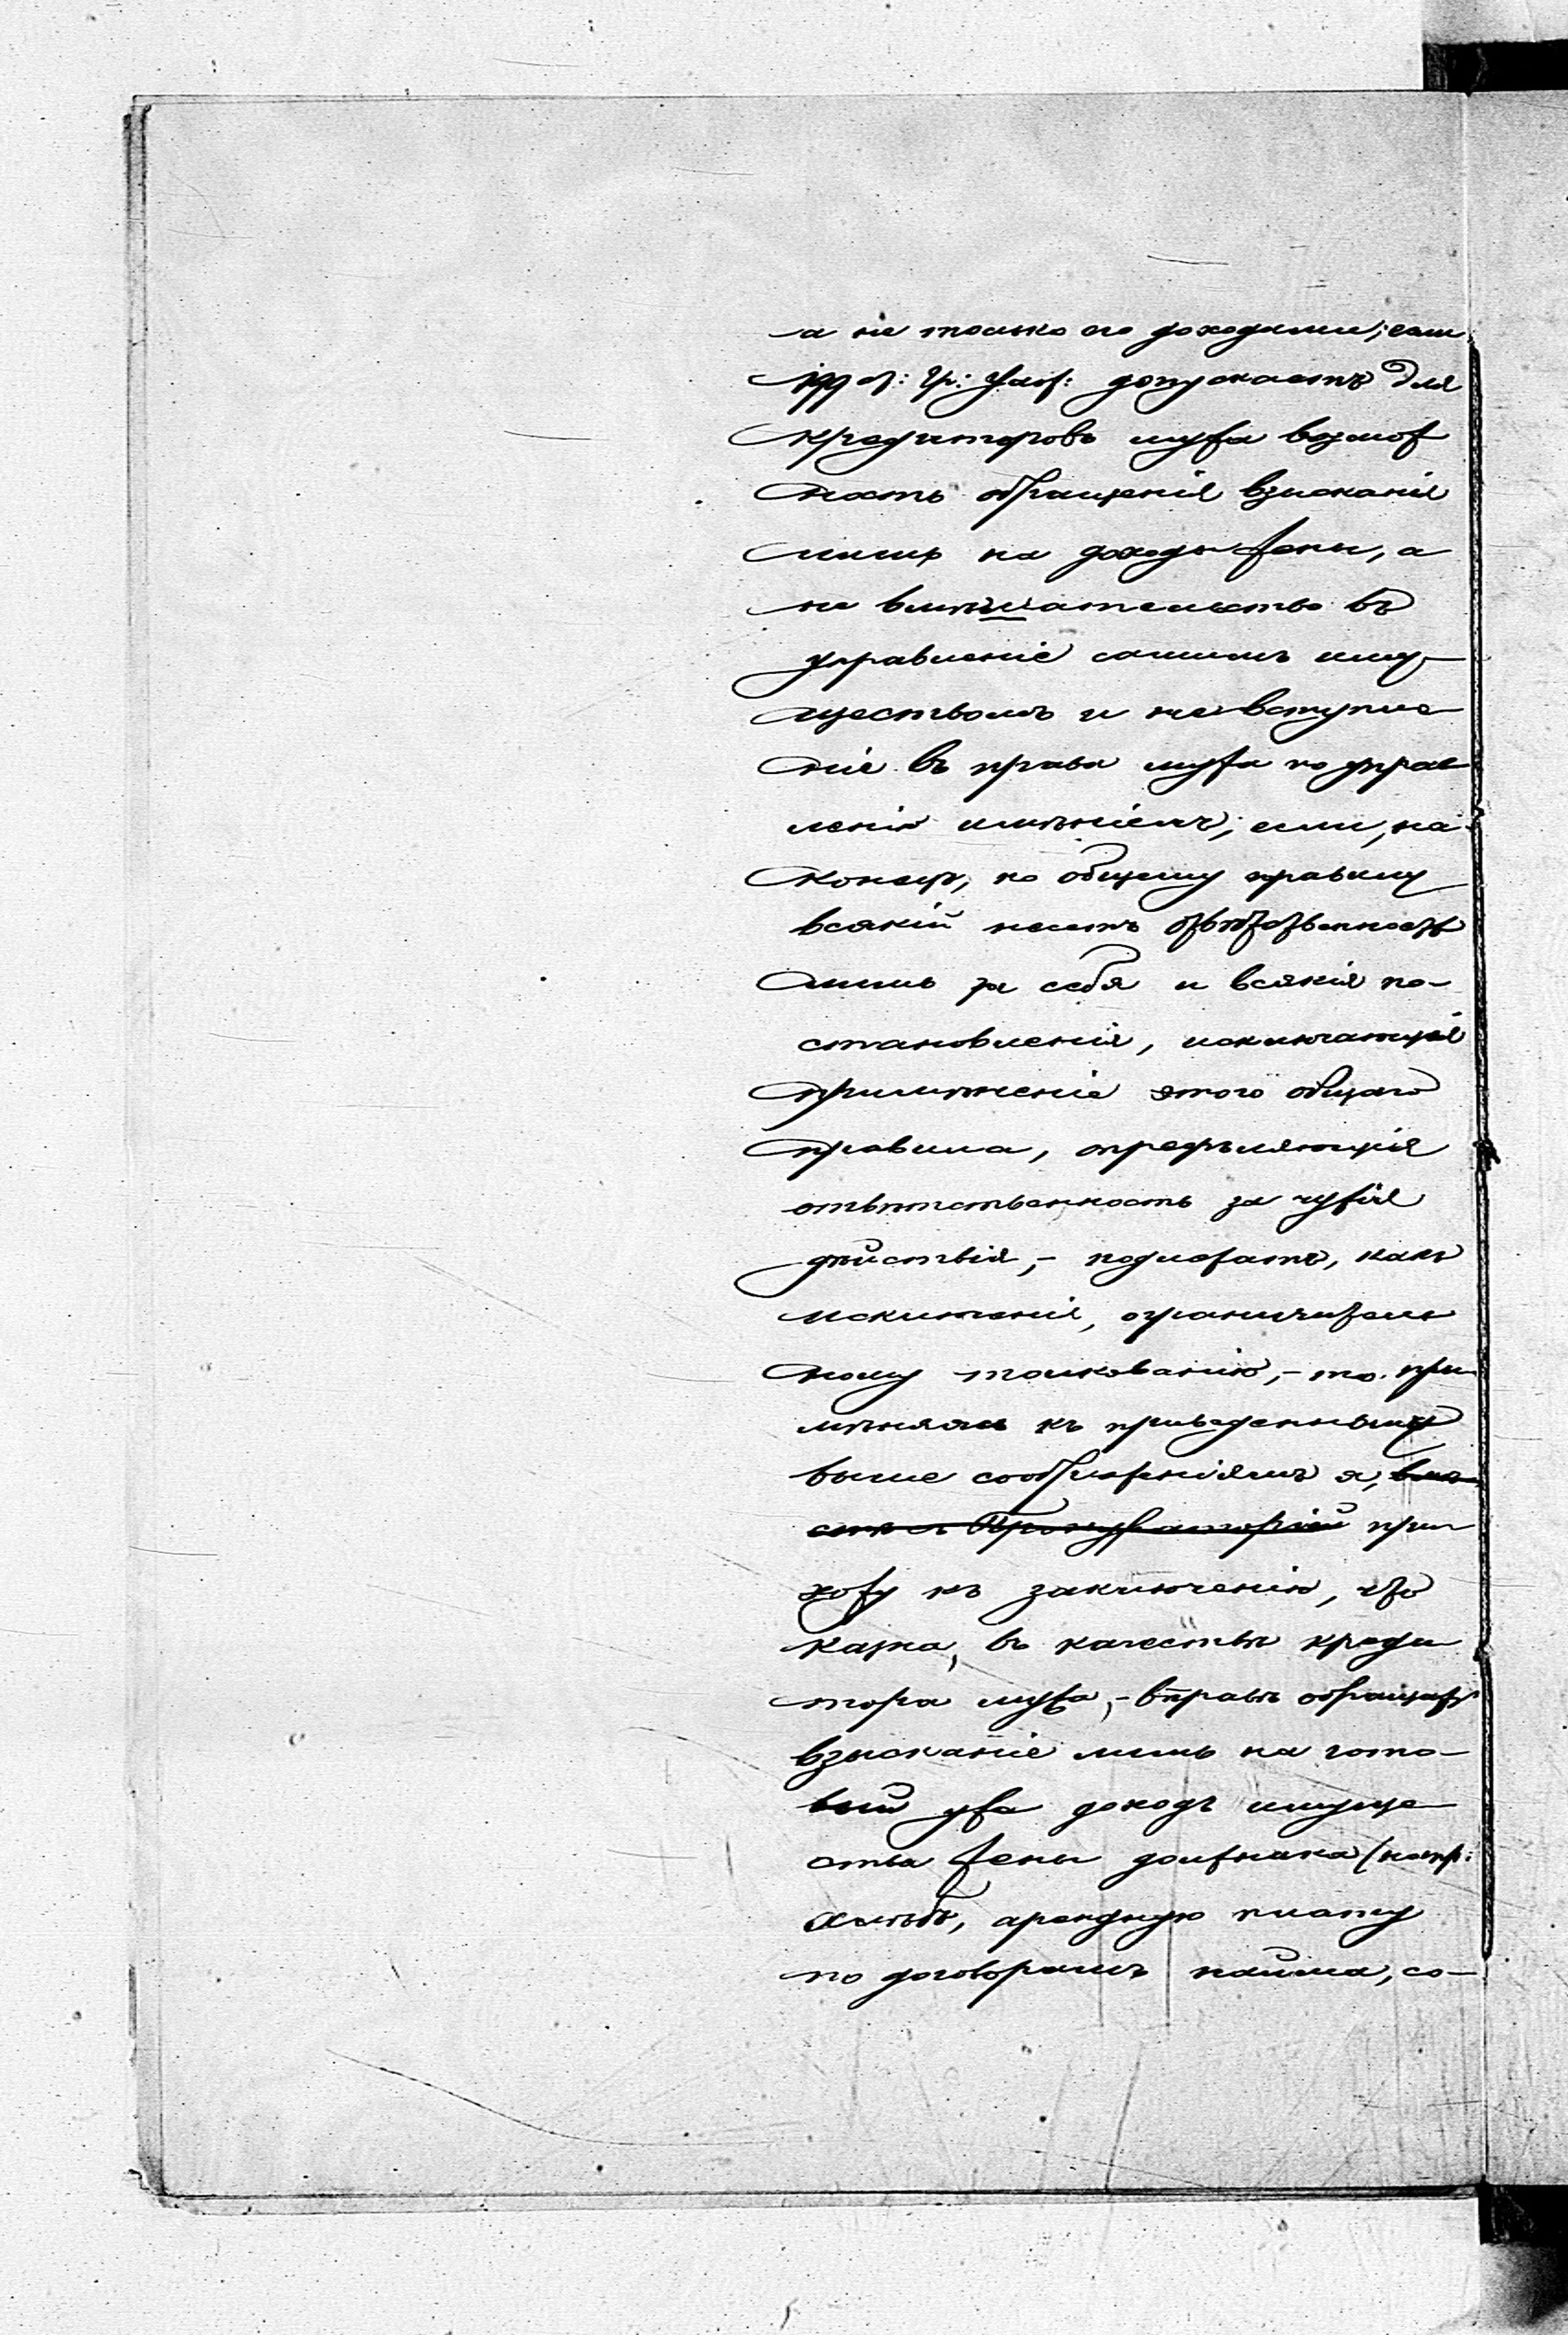 а не только его доходами; если
199 ст: Гр: Улож: допускаетъ для
кредиторовъ мужа возмож
ность обращенія взысканія
лишь на доходы жены, а
не вмѣшательство въ
управленіе самимъ иму-
ществомъ и не вступле
ніе въ права мужа по управ
ленію имѣніемъ; если, на
конецъ, по общему правилу
всякій несетъ отвѣтственность
лишь за себя и всякія по-
становленія, исключающія
примѣненіе этого общаго
правила, опредѣляющія
отвѣтственность за чужія
дѣйствія, - подлежатъ, какъ
исключенія, ограничитель
ному толкованію, - то при
мѣняясь къ приведеннымъ
выше соображеніямъ я, вмѣ
стѣ съ Прокураторіей при
хожу къ заключенію, что
казна, въ качествѣ креди
тора мужа, - вправѣ обращать
взысканіе лишь на гото-
вый уже доходъ имуще
ства жены должника (напр:
хлѣбъ, арендную плату
по договорамъ найма, со-